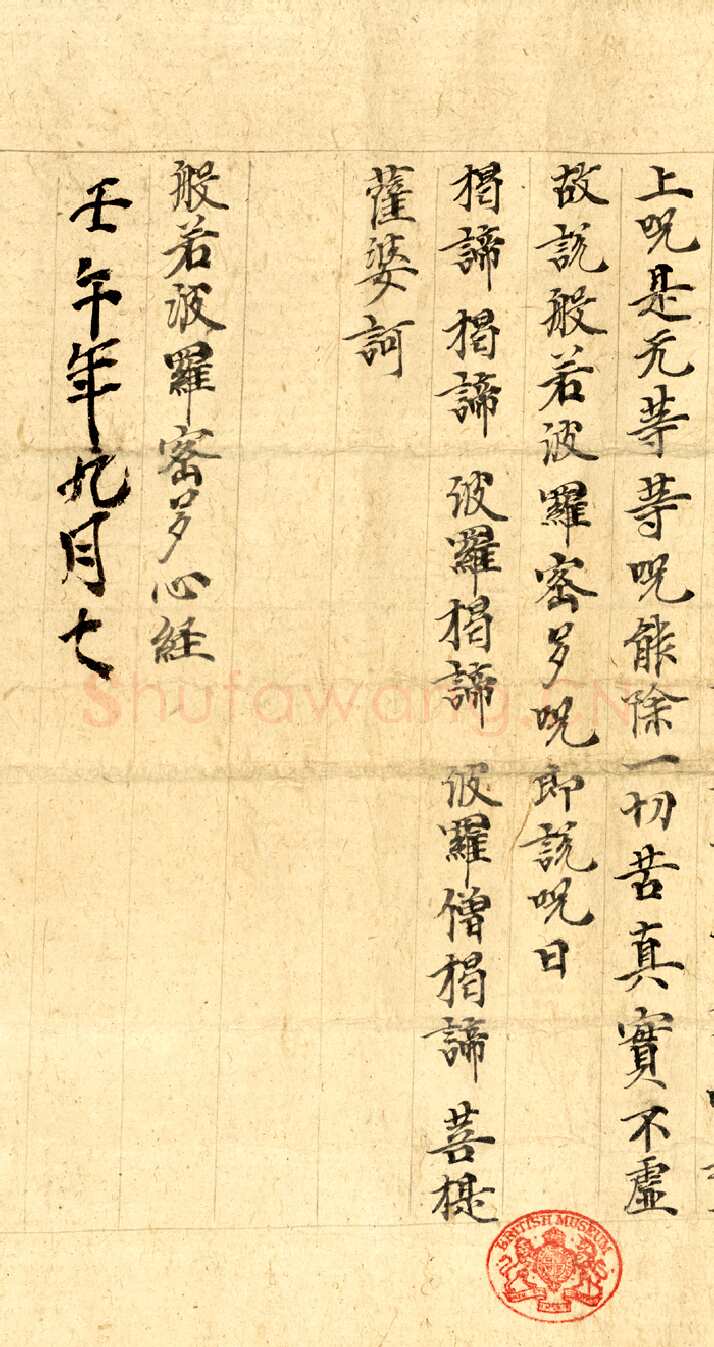 上呪是无等等呪能除一切苦真實不虛
故說般若波羅蜜多呪即說呪曰
揭諦揭諦 波羅揭諦 波羅僧揭諦 菩提
薩婆訶
般若波羅蜜多心経
壬午年九月七
BRITISH MUSEUM
shufawang.CN